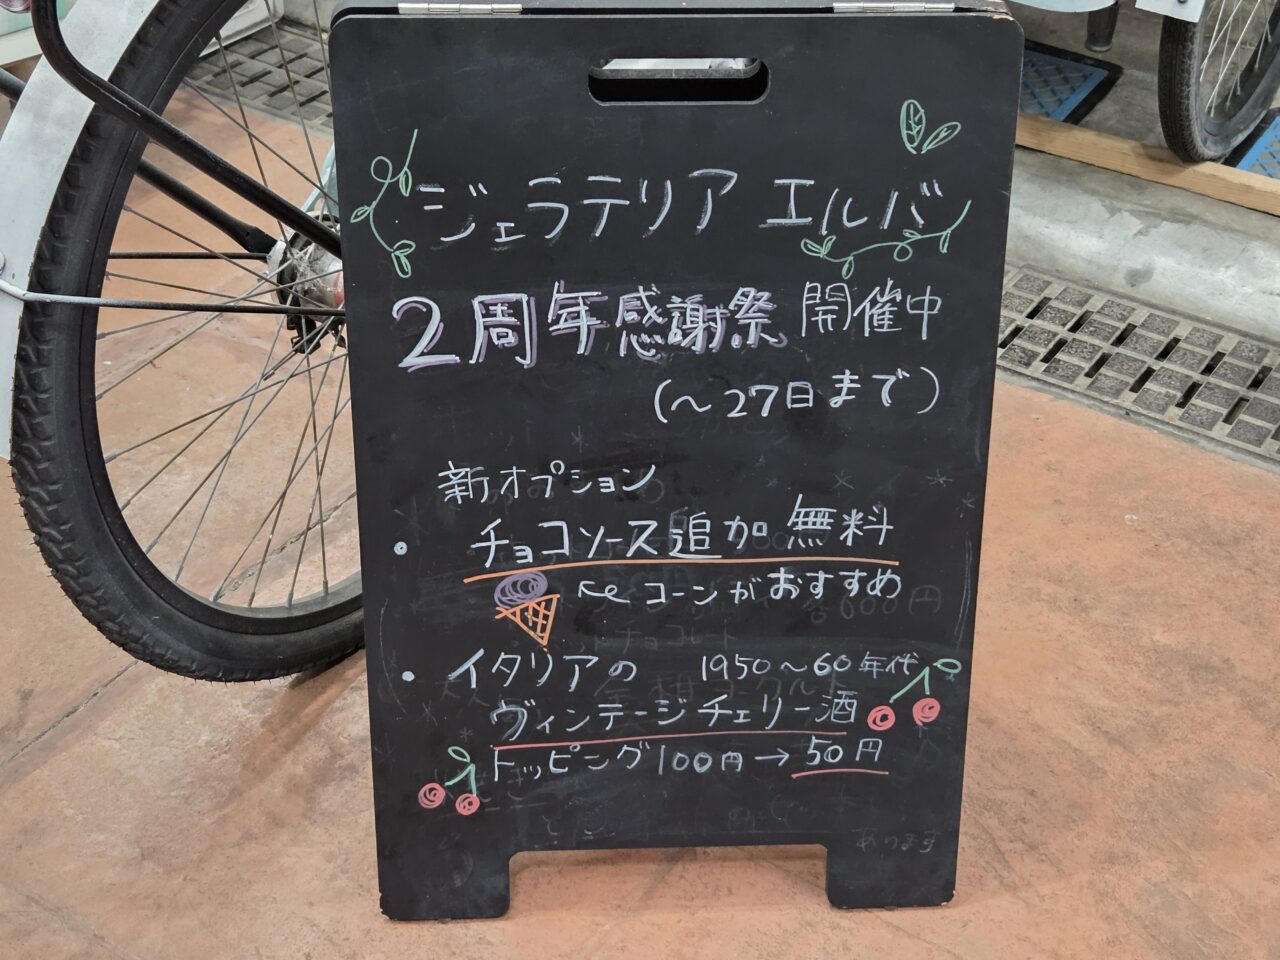 ジェラテリア エルバ
2周年感謝祭 開催中
(～27日まで)
新オプション
・ チョコソース追加 無料
コーンがおすすめ
・ イタリアの 1950～60年代
ヴィンテージチェリー酒
トッピング100円→50円